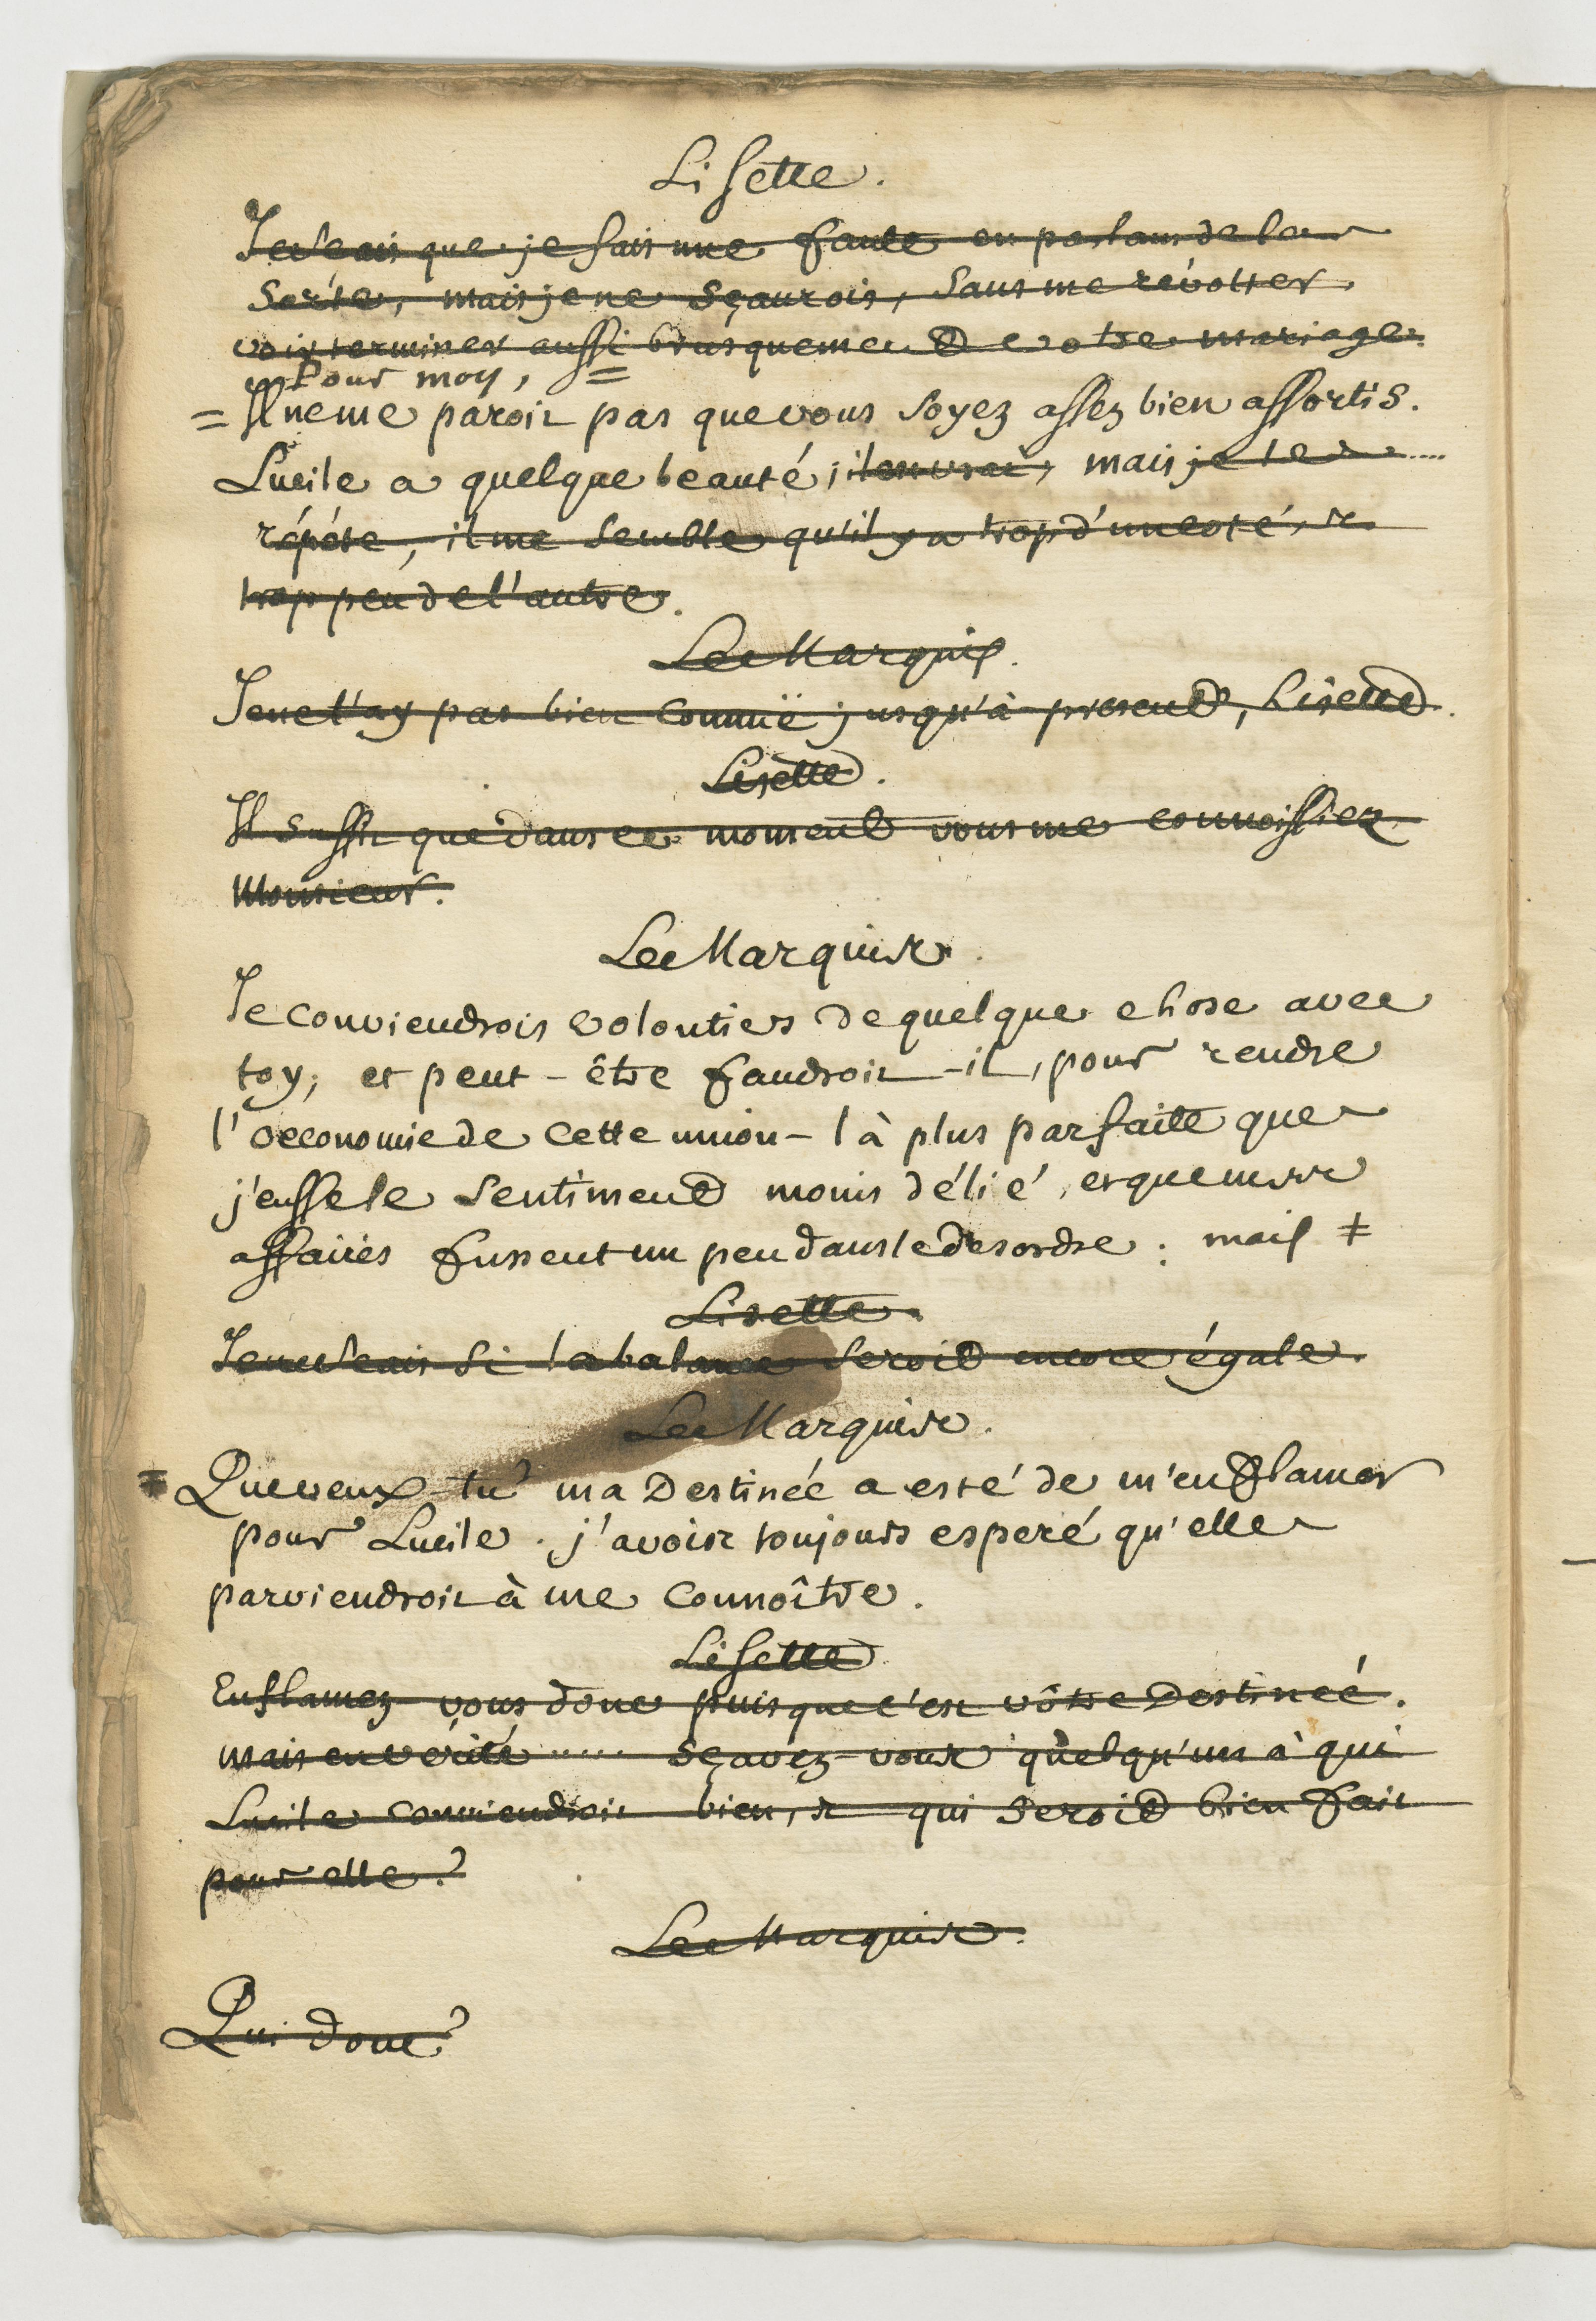 Lisette.
Je sçais que je fais une faute en parlant de la
sorte, mais je ne sçaurois, sans me révolter,
voir terminer aussi brusquement votre mariage.
Pour moy, =
= Il ne me paroit pas que vous soyez assez bien assortis.
Lucile a quelque beauté, il est vrai, mais je le
répéte, il me semble qu'il y a trop d'un costé, et
trop peu de l'autre.
Le Marquis.
Je ne t'ay pas bien connuë jusqu'à present, Lisette.
Lisette.
Il suffit que dans ce moment vous me connoissiez
Monsieur.
Le Marquis.
Je conviendrois volontiers de quelque chose avec
toy, et peut-être faudroit-il, pour rendre
l'oeconomie de cette union-là plus parfaite que
j'eusse le sentiment moins délié, et que mes
affaires fussent un peu dans le desordre : mais ‡
Lisette.
Je ne sçais si la balance seroit encore égale.
Le Marquis.
‡ Que veux-tu? ma Destinée a esté de m'enflamer
pour Lucile. j'avois toujours esperé qu'elle
parviendroit à me connoître.
Lisette
Enflamez vous donc puisque c'est vôtre Destinée.
mais en vérité ..... sçavez-vous quelqu'un à qui
Lucile conviendroit bien, et qui seroit bien fait
pour elle?
Le Marquis.
Qui donc?